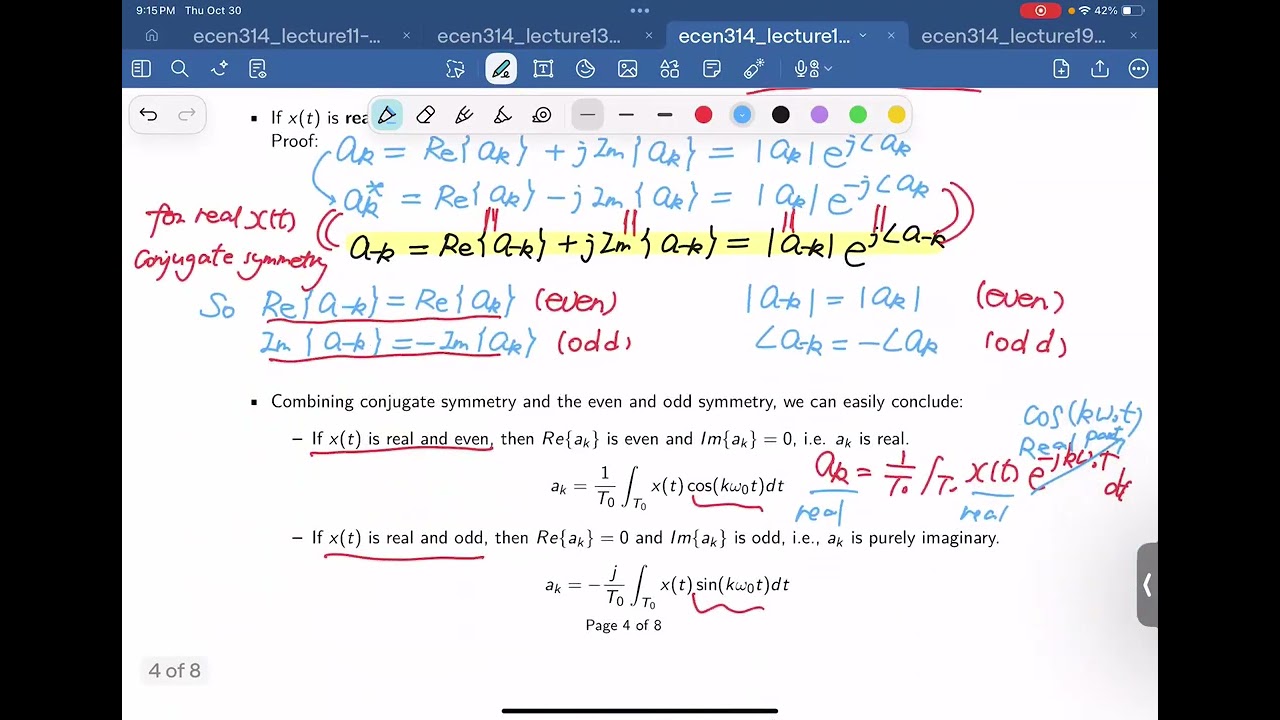 9:15 PM Thu Oct 30
42%
ecen314_lecture11-... ecen314_lecture13... ecen314_lecture1... ecen314_lecture19...
▪ If x(t) is rea
Proof:
aₖ = Re{aₖ} + jIm{aₖ} = |aₖ| e^{j∠aₖ}
aₖ* = Re{aₖ} − jIm{aₖ} = |aₖ| e^{−j∠aₖ}
for real x(t)
conjugate symmetry
a₋ₖ = Re{a₋ₖ} + jIm{a₋ₖ} = |a₋ₖ| e^{j∠a₋ₖ}
So Re{a₋ₖ} = Re{aₖ} (even) |a₋ₖ| = |aₖ| (even)
Im{a₋ₖ} = −Im{aₖ} (odd) ∠a₋ₖ = −∠aₖ (odd)
▪ Combining conjugate symmetry and the even and odd symmetry, we can easily conclude:
cos(kω₀t)
Real part
– If x(t) is real and even, then Re{aₖ} is even and Im{aₖ} = 0, i.e. aₖ is real.
aₖ = 1/T₀ ∫_{T₀} x(t) cos(kω₀t)dt
aₖ = 1/T₀ ∫_{T₀} x(t) e^{−jkω₀t} dt
real real
– If x(t) is real and odd, then Re{aₖ} = 0 and Im{aₖ} is odd, i.e., aₖ is purely imaginary.
aₖ = −j/T₀ ∫_{T₀} x(t) sin(kω₀t)dt
Page 4 of 8
4 of 8